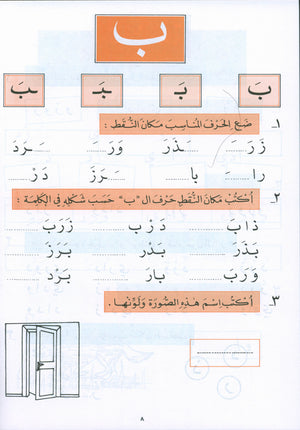 ب
بَ بَـ ـبَـ ـبَ
١ـ ضَعِ الحَرْفَ المُناسِبَ مَكانَ النُّقَطِ :
زَرَ...... ......ـذَرَ وَرَ...... ......ـرَدَ
را...... با...... ......ـرَزَ دَرْ......
٢ـ أكْتُبْ مَكانَ النُّقَطِ حَرْفَ ال "ب" حَسَبَ شَكْلِهِ في الكَلِمَةِ :
ذابَ ...... دَرْب ...... زَرَبَ ......
بَذَرَ ...... بَدْر ...... بَرَزَ ......
وَرَبَ ...... بارَ ...... بَرْد ......
٣ـ أكْتُبْ اِسْمَ هَذِهِ الصُّورَةِ وَلَوِّنْها .
٨